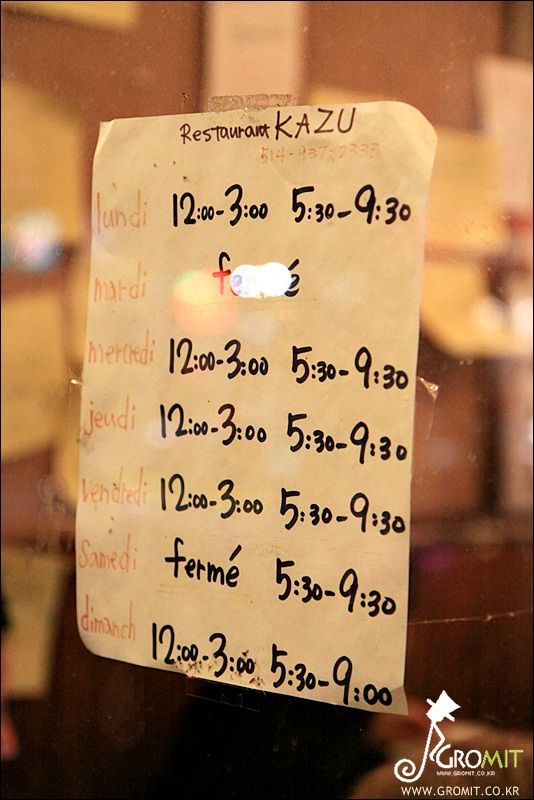 Restaurant KAZU
514-937-2333
lundi 12:00-3:00 5:30-9:30
mardi
mercredi 12:00-3:00 5:30-9:30
jeudi 12:00-3:00 5:30-9:30
vendredi 12:00-3:00 5:30-9:30
Samedi fermé 5:30-9:30
dimanch 12:00-3:00 5:30-9:00
GROMIT
WWW.GROMIT.CO.KR
WWW.GROMIT.CO.KR